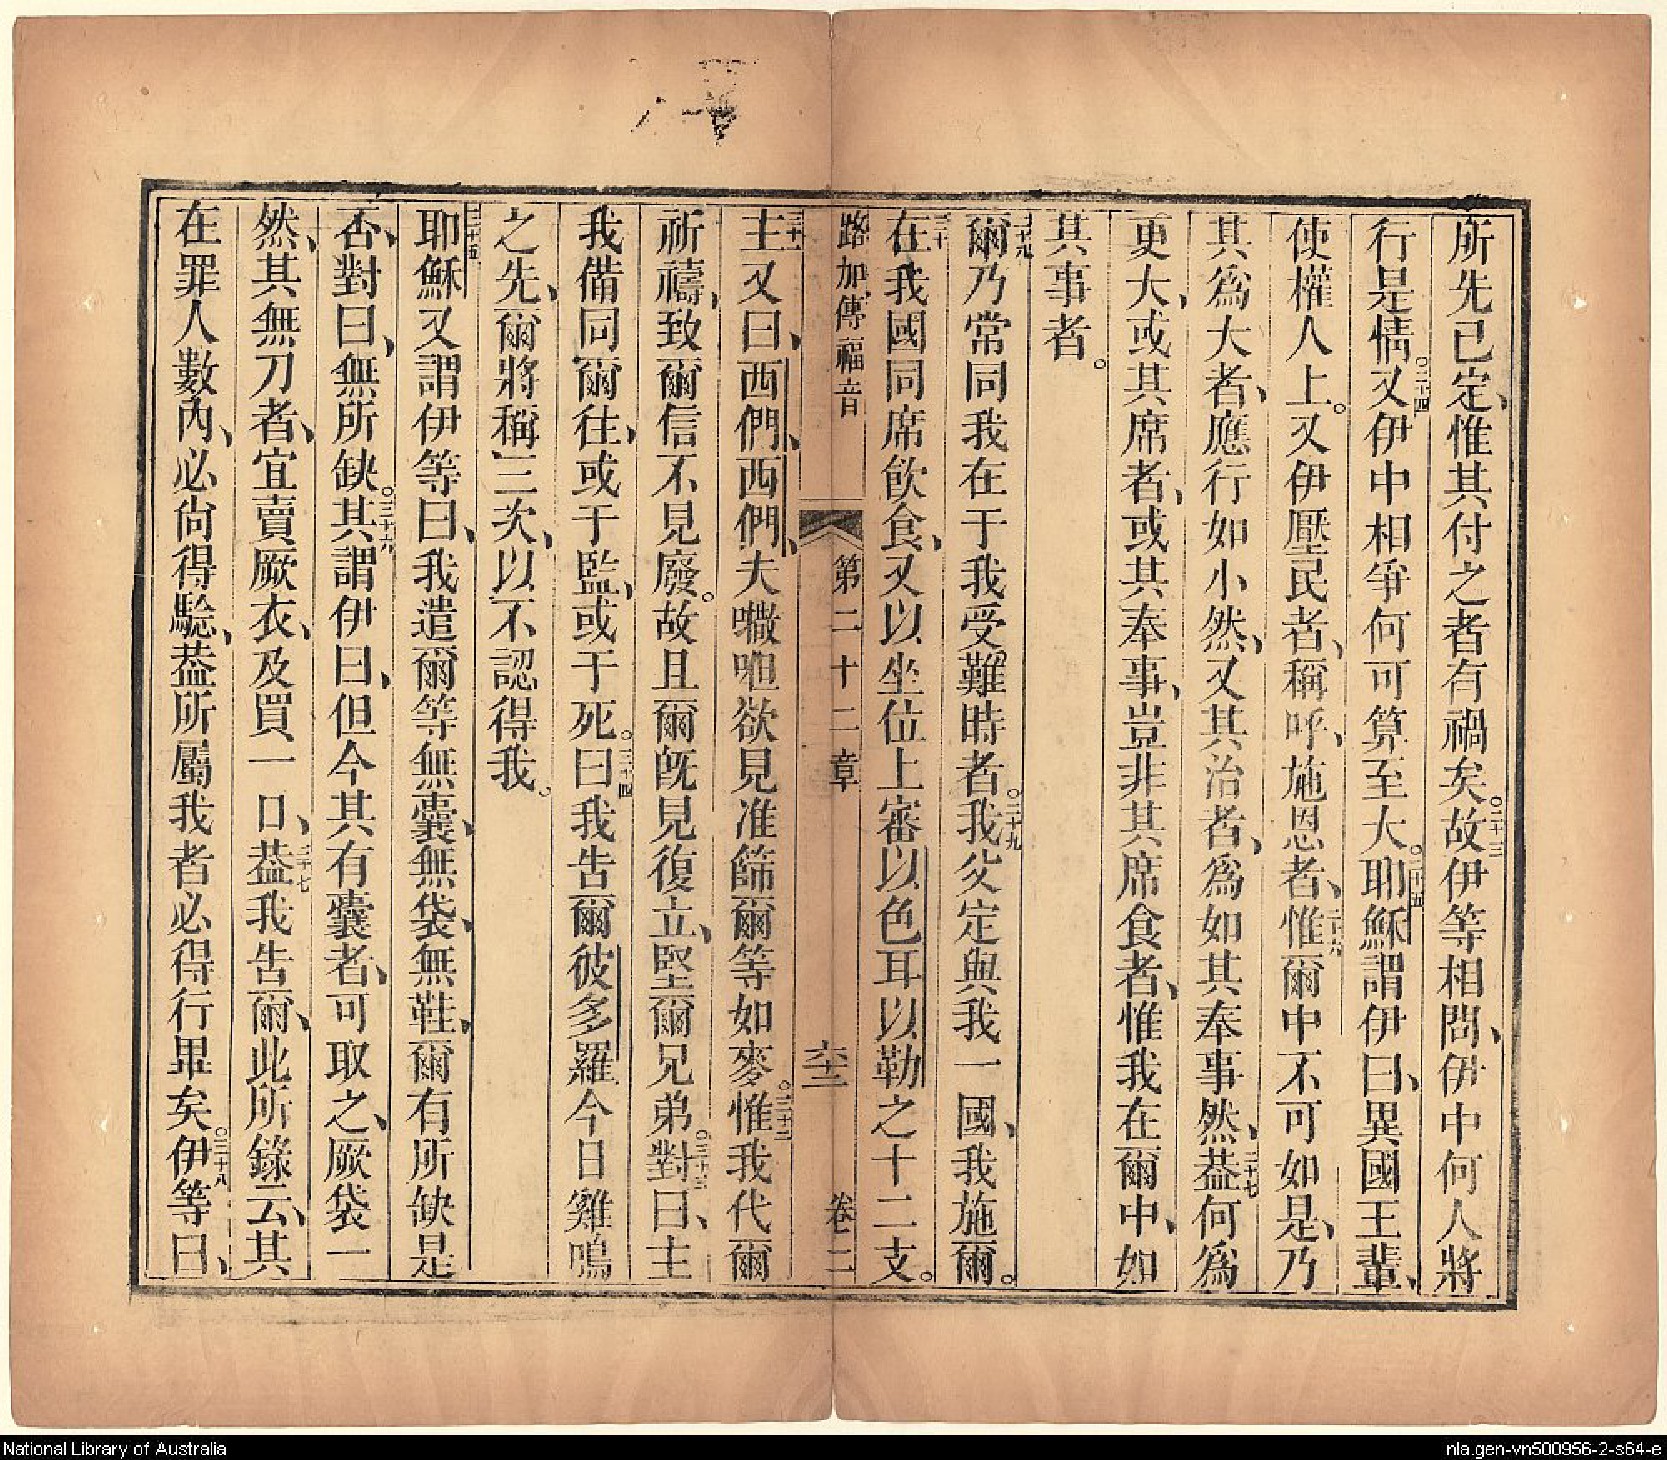 所先已定、惟其付之者有禍矣。二十三故伊等相問、伊中何人將
行是情。二十四又伊中相爭何可算至大。二十五耶穌謂伊曰、異國王輩、
使權人上。又伊壓民者、稱呼、施恩者、二十六惟爾中不可如是、乃
其為大者、應行如小然、又其治者、為如其奉事然、二十七葢何為
更大、或其席者、或其奉事、豈非其席食者、惟我在爾中、如
其事者。
爾乃常同我在于我受難時者。二十九我父定與我一國、我施爾。
三十在我國同席飲食、又以坐位上審以色耳以勒之十二支。
路加傳福音 第二十二章 六十二 卷二
三十一主又曰、西們、西們、夫㘔呾欲見准篩爾等如麥。三十二惟我代爾
祈禱、致爾信不見廢。故且爾旣見復立、堅爾兄弟。三十三對曰、主
我備同爾往、或于監、或于死。三十四曰我告爾彼多羅今日雞鳴
之先、爾將稱三次、以不認得我。
三十五耶穌又謂伊等曰、我遣爾等無囊、無袋、無鞋、爾有所缺是
否、對曰、無所缺。三十六其謂伊曰、但今其有囊者、可取之、厥袋一
然、其無刀者、宜賣厥衣、及買一口、三十七葢我告爾、此所錄云、其
在罪人數內、必尙得驗、葢所屬我者必得行畢矣。三十八伊等曰、
National Library of Australia
nla.gen-vn500956-2-s64-e